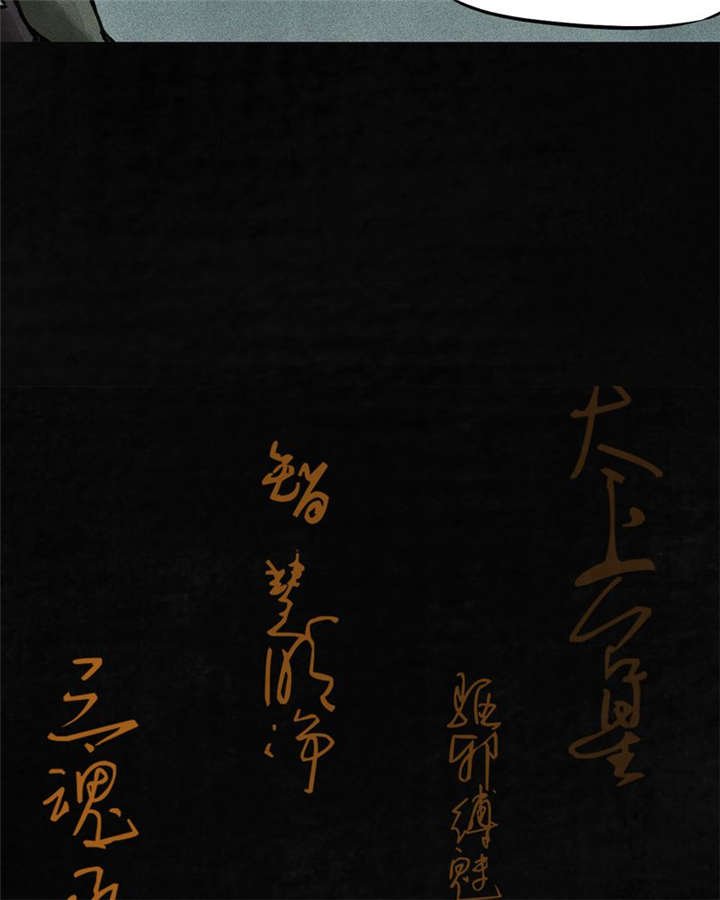 太上台星
驱邪缚魅
智慧明净
三魂永